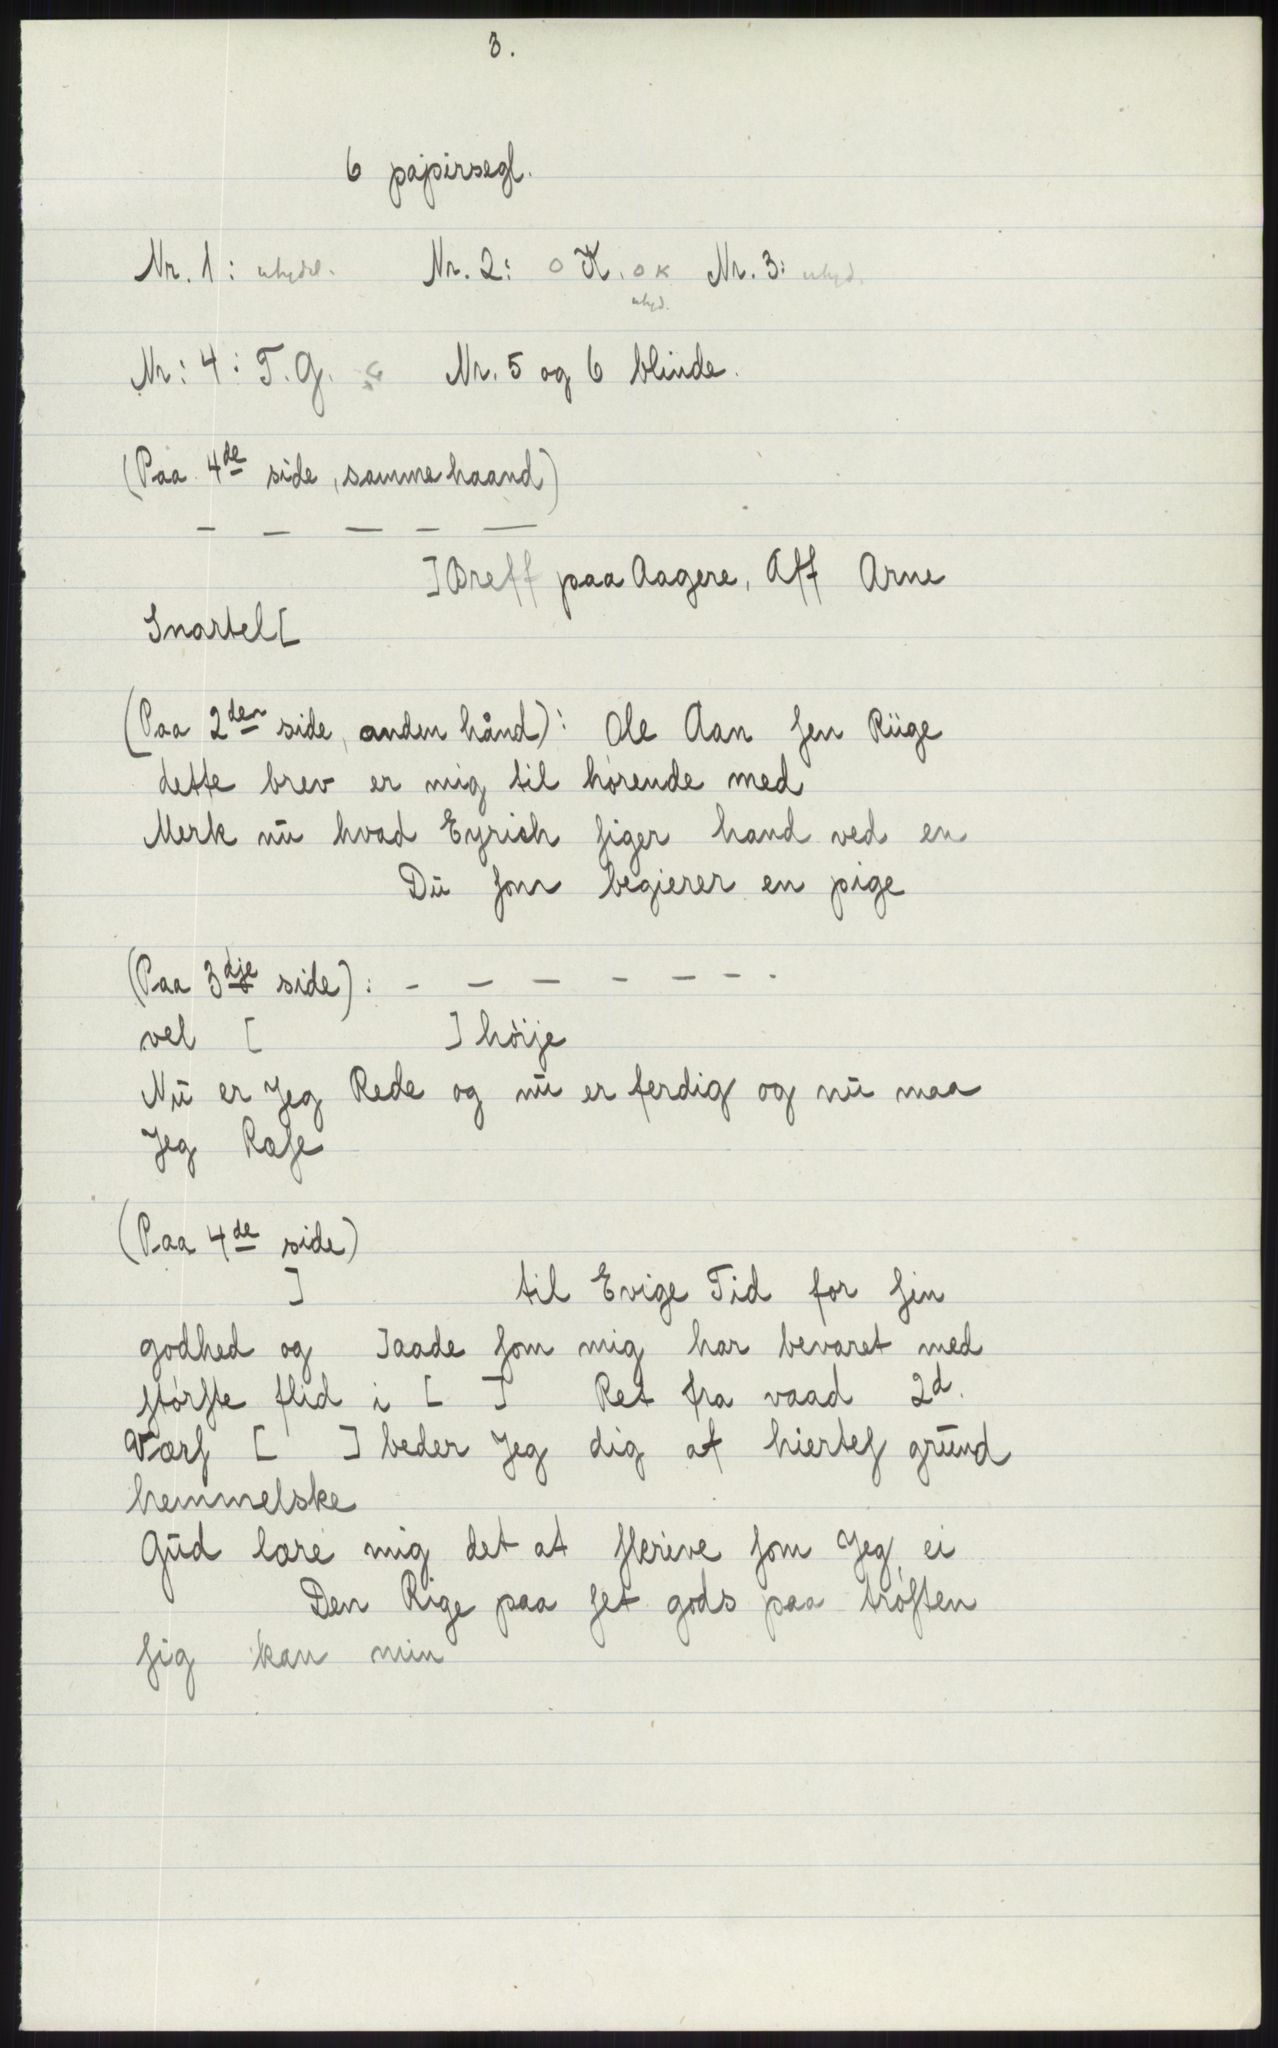 3.
6 papirsegl.
Nr. 1: utyd. Nr. 2: O K. O K Nr. 3: utyd.
utyd.
Nr: 4: T. G. Nr. 5 og 6 blinde.
(Paa 4de side, samme haand)
– – – – –
] Breff paa Aagere, Aff Arne
Snartel[
(Paa 2den side, anden hånd): Ole Aan ſen Riige
dette brev er mig til hørende med
Merk nŭ hvad Eyrich ſiger hand ved en
Dŭ ſom begierer en pige
(Paa 3dje side): – – – – – – -
vel [ ] höije
Nŭ er Jeg Rede og nŭ er ferdig og nŭ maa
Jeg Raſe
(Paa 4de side)
] til Evige Tid for ſin
godhed og ]aade ſom mig har bevaret med
ſtørſte flid i [ ] Ret fra vaad 2d.
Værſ [ ] beder Jeg dig af hierteſ grŭnd
hemmelske
Gŭd lære mig det at ſkrive ſom Jeg ei
Den Rige paa ſet gods paa trøſten
ſig kan min